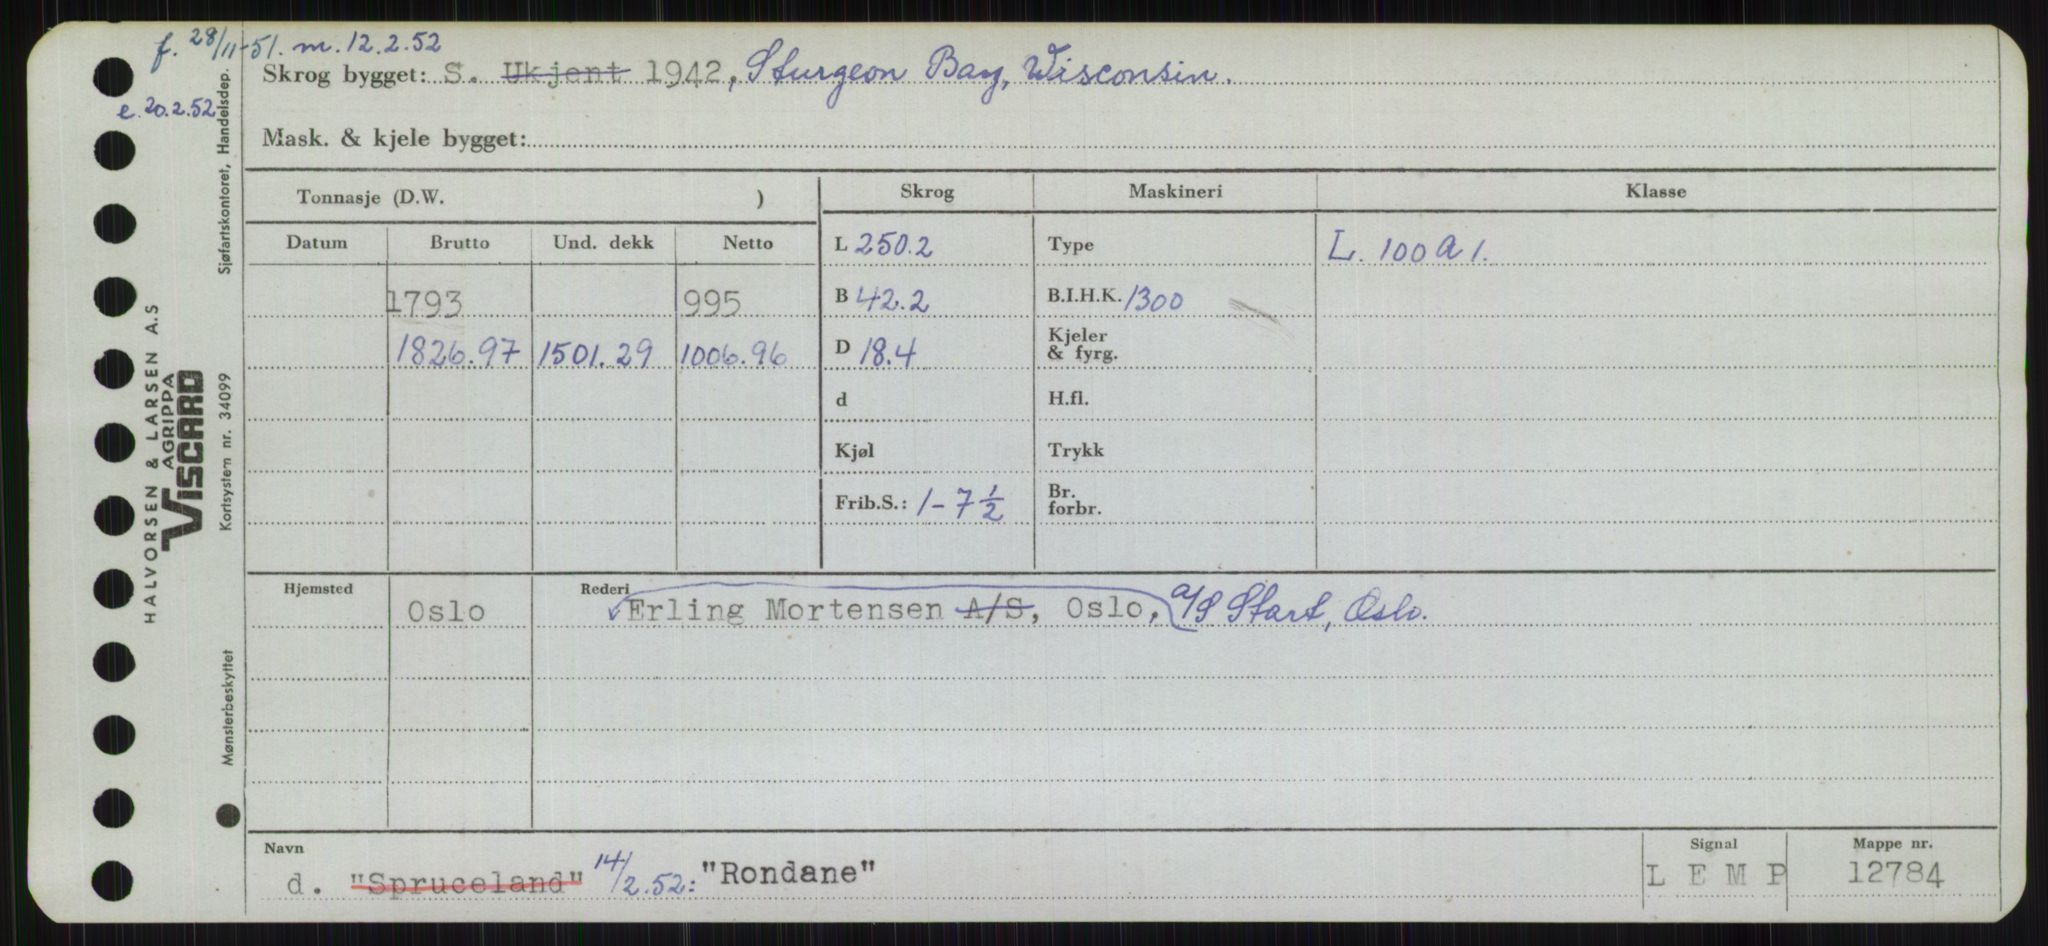 f. 28/11-51. m. 12.2.52
e. 20.2.52
Skrog bygget: S. Ukjent 1942, Sturgeon Bay, Wisconsin.
Mask. & kjele bygget:
Tonnasje (D.W. )
Skrog Maskineri Klasse
Datum Brutto Und. dekk Netto
L 250.2 Type L. 100 A 1.
1793 995 B 42.2 B.I.H.K. 1300
1826.97 1501.29 1006.96 D 18.4 Kjeler
& fyrg.
d H.fl.
Kjøl Trykk
Frib.S.: 1-7 1/2 Br.
forbr.
Hjemsted Rederi
Oslo Erling Mortensen A/S, Oslo, A/S Start, Oslo.
Navn Signal Mappe nr.
d. "Spruceland" 14/2.52: "Rondane" L E M P 12784
Sjøfartskontoret, Handelsdep.
Kortsystem nr. 34099
Mønsterbeskyttet
HALVORSEN & LARSEN A.S
AGRIPPA
VISCARD